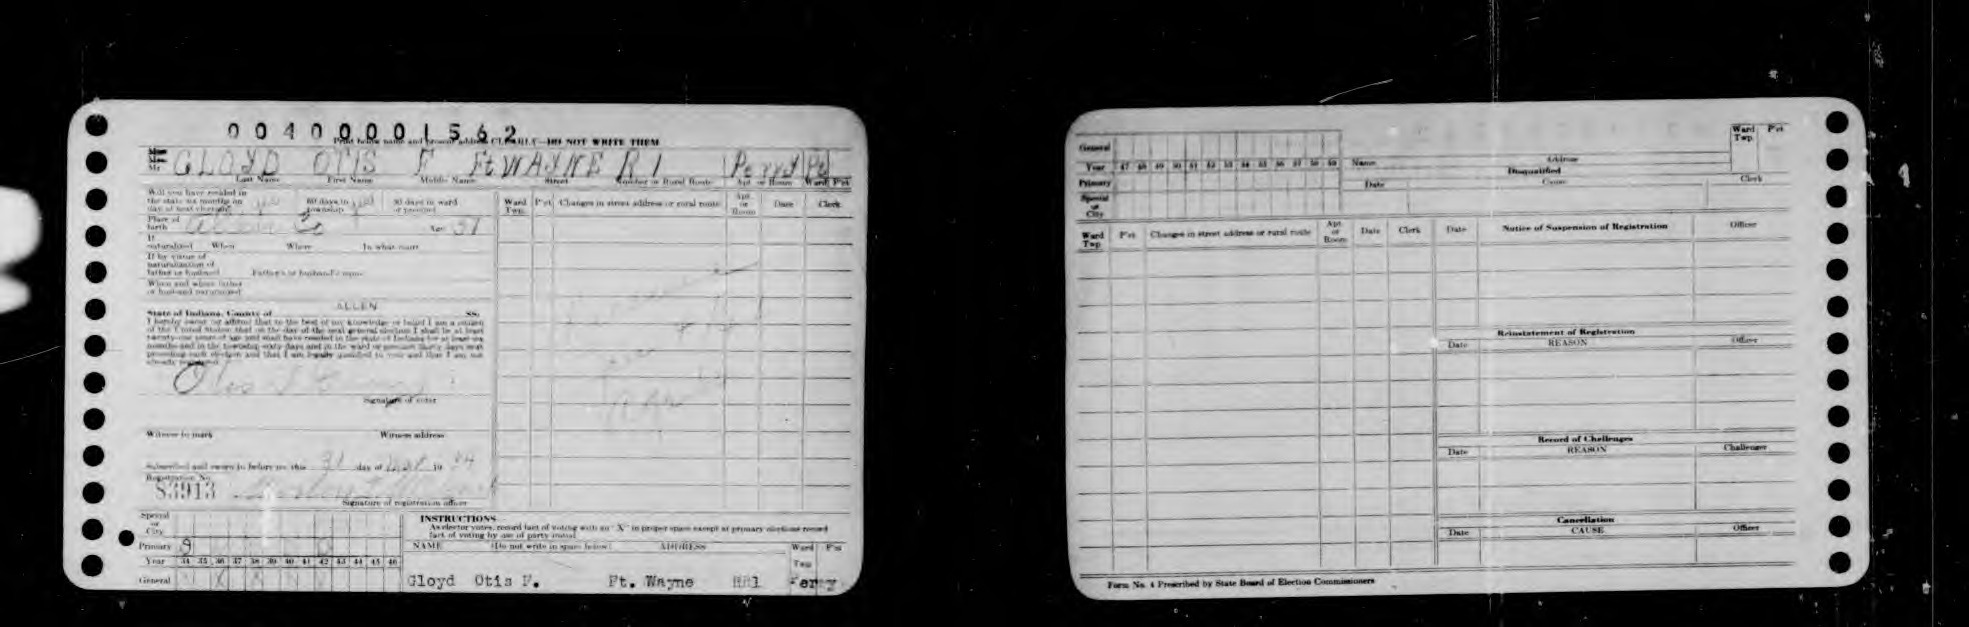 0 0 4 0 0 0 0 1 5 6 2
Print below name and present address CLEARLY—DO NOT WRITE THEM
Miss
Mrs.
Mr. GLOYD OTIS F Ft WAYNE R 1 Perry Pt
Last Name First Name Middle Name Street Number or Rural Route Apt. or Room Ward P'ct
Will you have resided in
the state six months on
day of next election? yes 60 days in
township yes 30 days in ward
or precinct
Place of
birth Allen Co Age 51
If
naturalized When Where In what court
If by virtue of
naturalization of
father or husband Father's or husband's name
When and where father
or husband naturalized
State of Indiana, County of ALLEN SS:
I hereby swear (or affirm) that to the best of my knowledge or belief I am a citizen
of the United States; that on the day of the next general election I shall be at least
twenty-one years of age and shall have resided in the state of Indiana for at least six
months and in the township sixty days and in the ward or precinct thirty days next
preceding such election and that I am legally qualified to vote and that I am not
already registered.
Signature of voter
Witness to mark Witness address
Subscribed and sworn to before me this 31 day of Mar 19 34
Registration No.
83913
Signature of registration officer
Ward
Twp. P'ct Changes in street address or rural route Apt.
or
Room Date Clerk
Special
or
City
Primary
Year 34 35 36 37 38 39 40 41 42 43 44 45 46
General X X
INSTRUCTIONS
As elector votes, record fact of voting with an "X" in proper space except at primary elections record
fact of voting by use of party initial
NAME (Do not write in space below) ADDRESS Ward
Twp P'ct
Gloyd Otis F. Ft. Wayne RR1 Perry
General
Year 47 48 49 50 51 52 53 54 55 56 57 58 59
Primary
Special
or
City
Name Address Ward
Twp. P'ct
Disqualified
Date Cause Clerk
Ward
Twp P'ct Changes in street address or rural route Apt.
or
Room Date Clerk
Date Notice of Suspension of Registration Officer
Reinstatement of Registration
Date REASON Officer
Record of Challenges
Date REASON Challenger
Cancellation
Date CAUSE Officer
Form No. 4 Prescribed by State Board of Election Commissioners